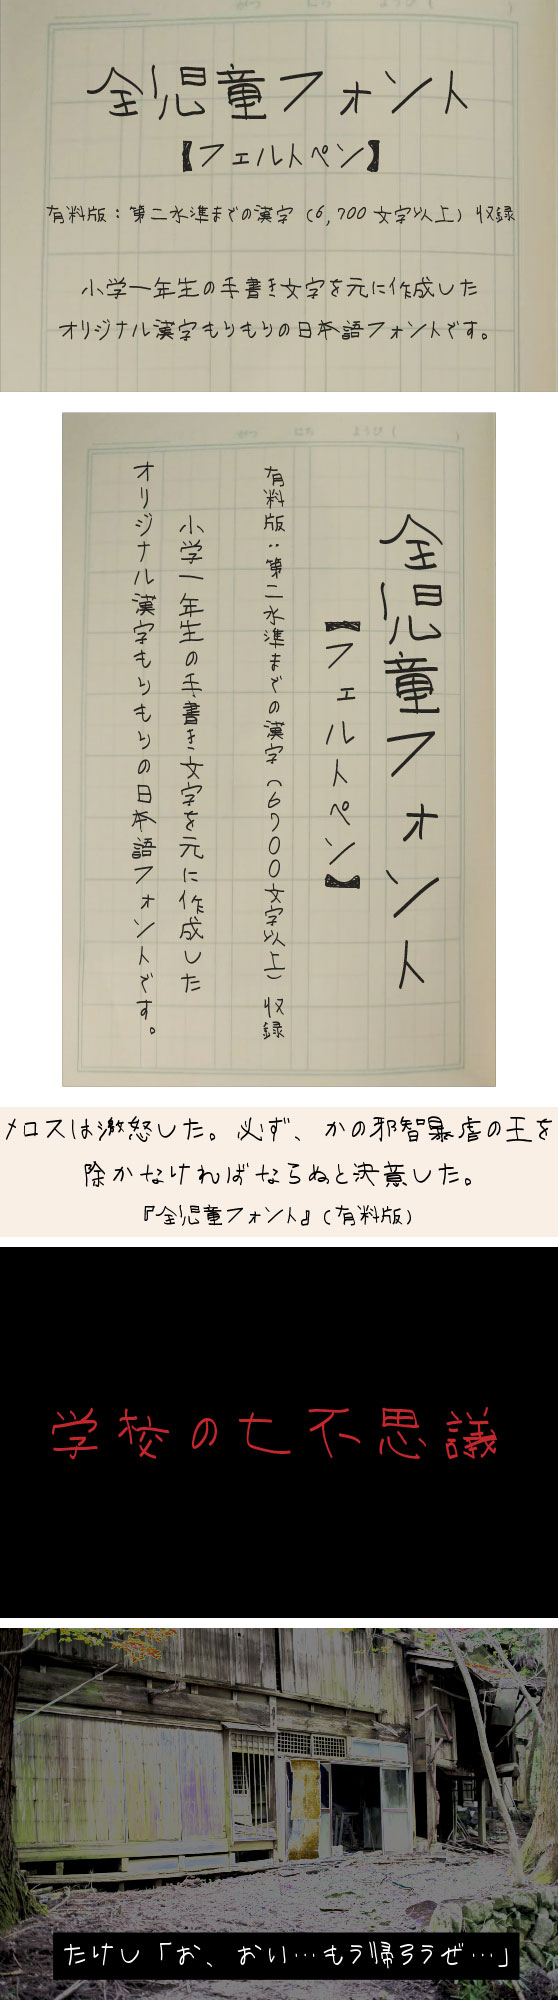 がつ　にち　ようび（　　）
全児童フォント
【フェルトペン】
有料版：第二水準までの漢字（6,700文字以上）収録
小学一年生の手書き文字を元に作成した
オリジナル漢字もりもりの日本語フォントです。
がつ　にち　ようび（　　）
全児童フォント
【フェルトペン】
有料版：第二水準までの漢字（6700文字以上）収録
小学一年生の手書き文字を元に作成した
オリジナル漢字もりもりの日本語フォントです。
メロスは激怒した。必ず、かの邪智暴虐の王を
除かなければならぬと決意した。
『全児童フォント』（有料版）
学校の七不思議
たけし「お、おい…もう帰ろうぜ…」